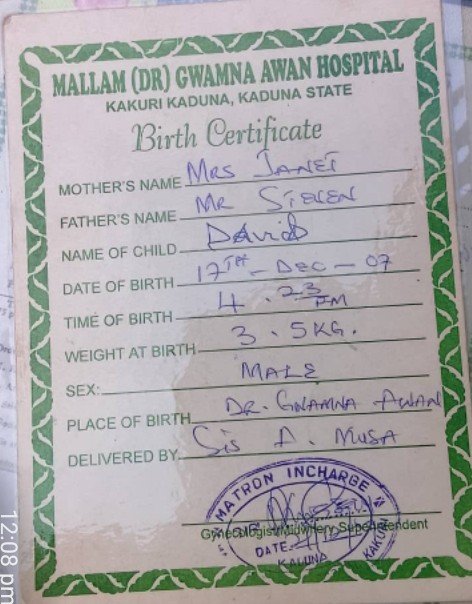 MALLAM (DR) GWAMNA AWAN HOSPITAL
KAKURI KADUNA, KADUNA STATE
Birth Certificate
MOTHER'S NAME MRS JANET
FATHER'S NAME MR STEVEN
NAME OF CHILD DAVID
DATE OF BIRTH 17TH - DEC - 07
TIME OF BIRTH 4.23 PM
WEIGHT AT BIRTH 3.5KG.
SEX: MALE
PLACE OF BIRTH DR. GWAMNA AWAN
DELIVERED BY SIS A. MUSA
MATRON INCHARGE
Gynecologist/Midwifery Superintendent
DATE
KAKURI
KADUNA
12:08 pm